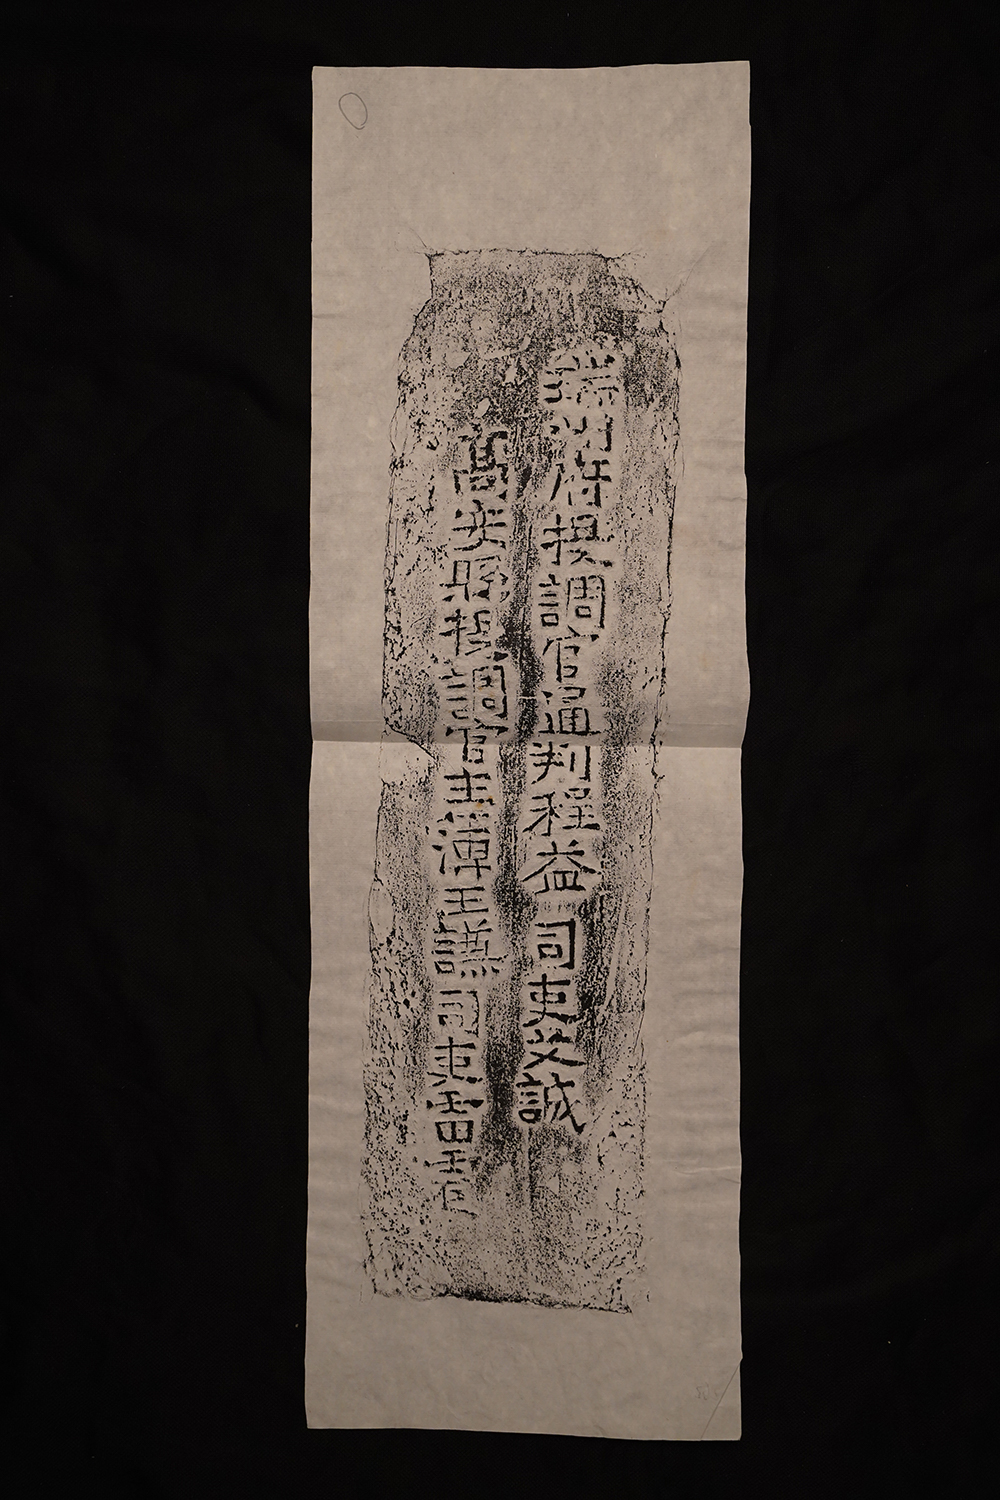 瑞州府提調官通判程益司吏艾誠
高安縣提調官主簿王謙司吏雷